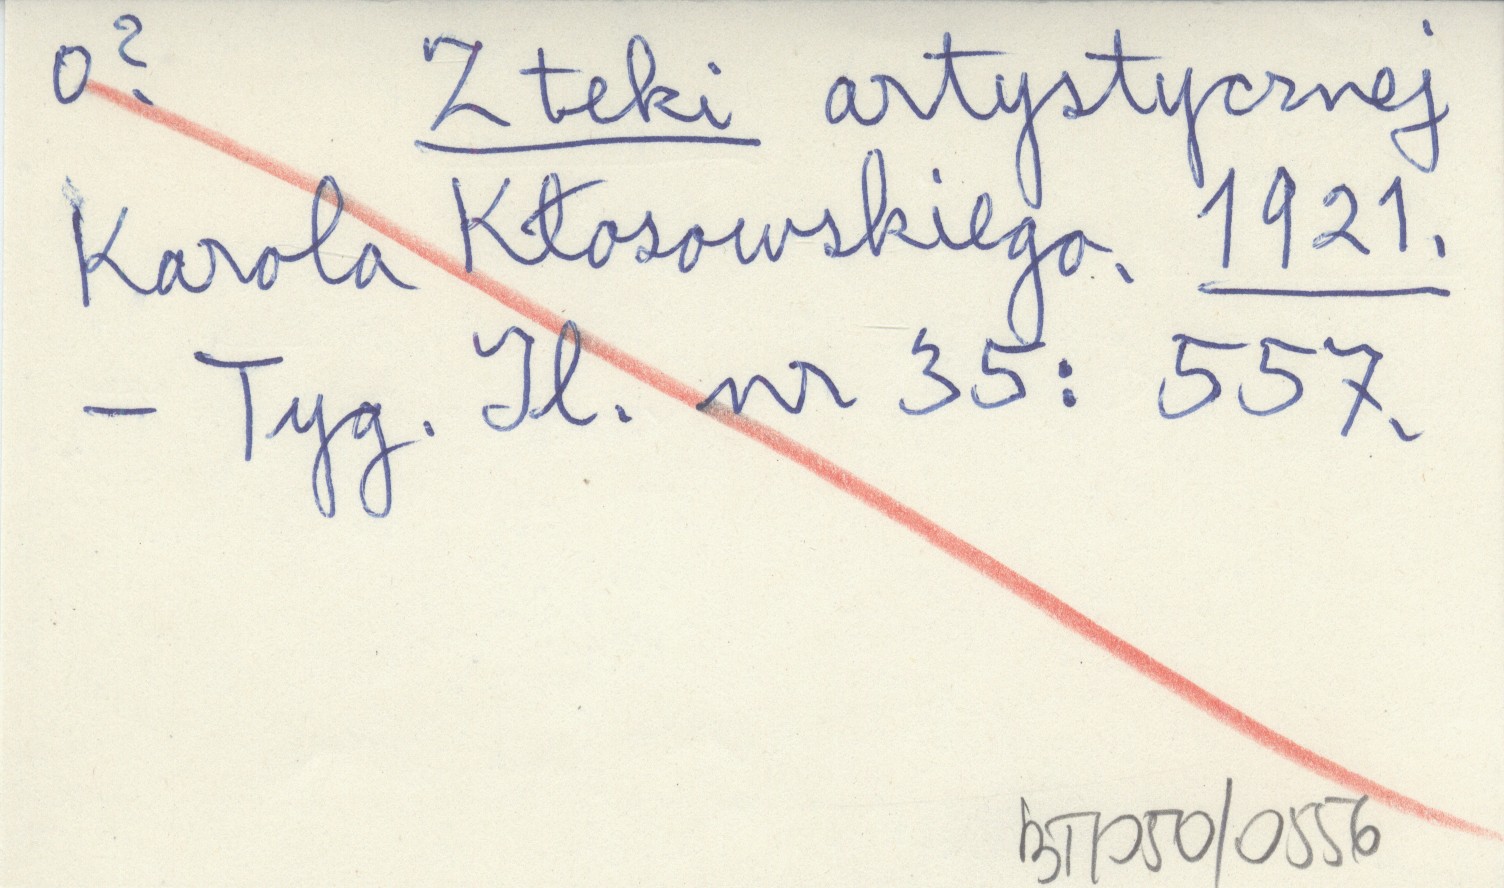 o? Z teki artystycznej
Karola Kłosowskiego. 1921.
– Tyg. Il. nr 35: 557.
BTP50/0556